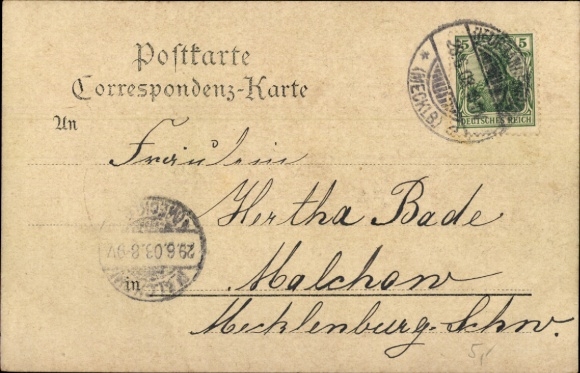 Postkarte
Correspondenz-Karte
An
Fräulein
Hertha Bade
in Malchow
Mecklenburg-Schw.
5 5
DEUTSCHES REICH
(MECKLB)
29.6.03.8-9V